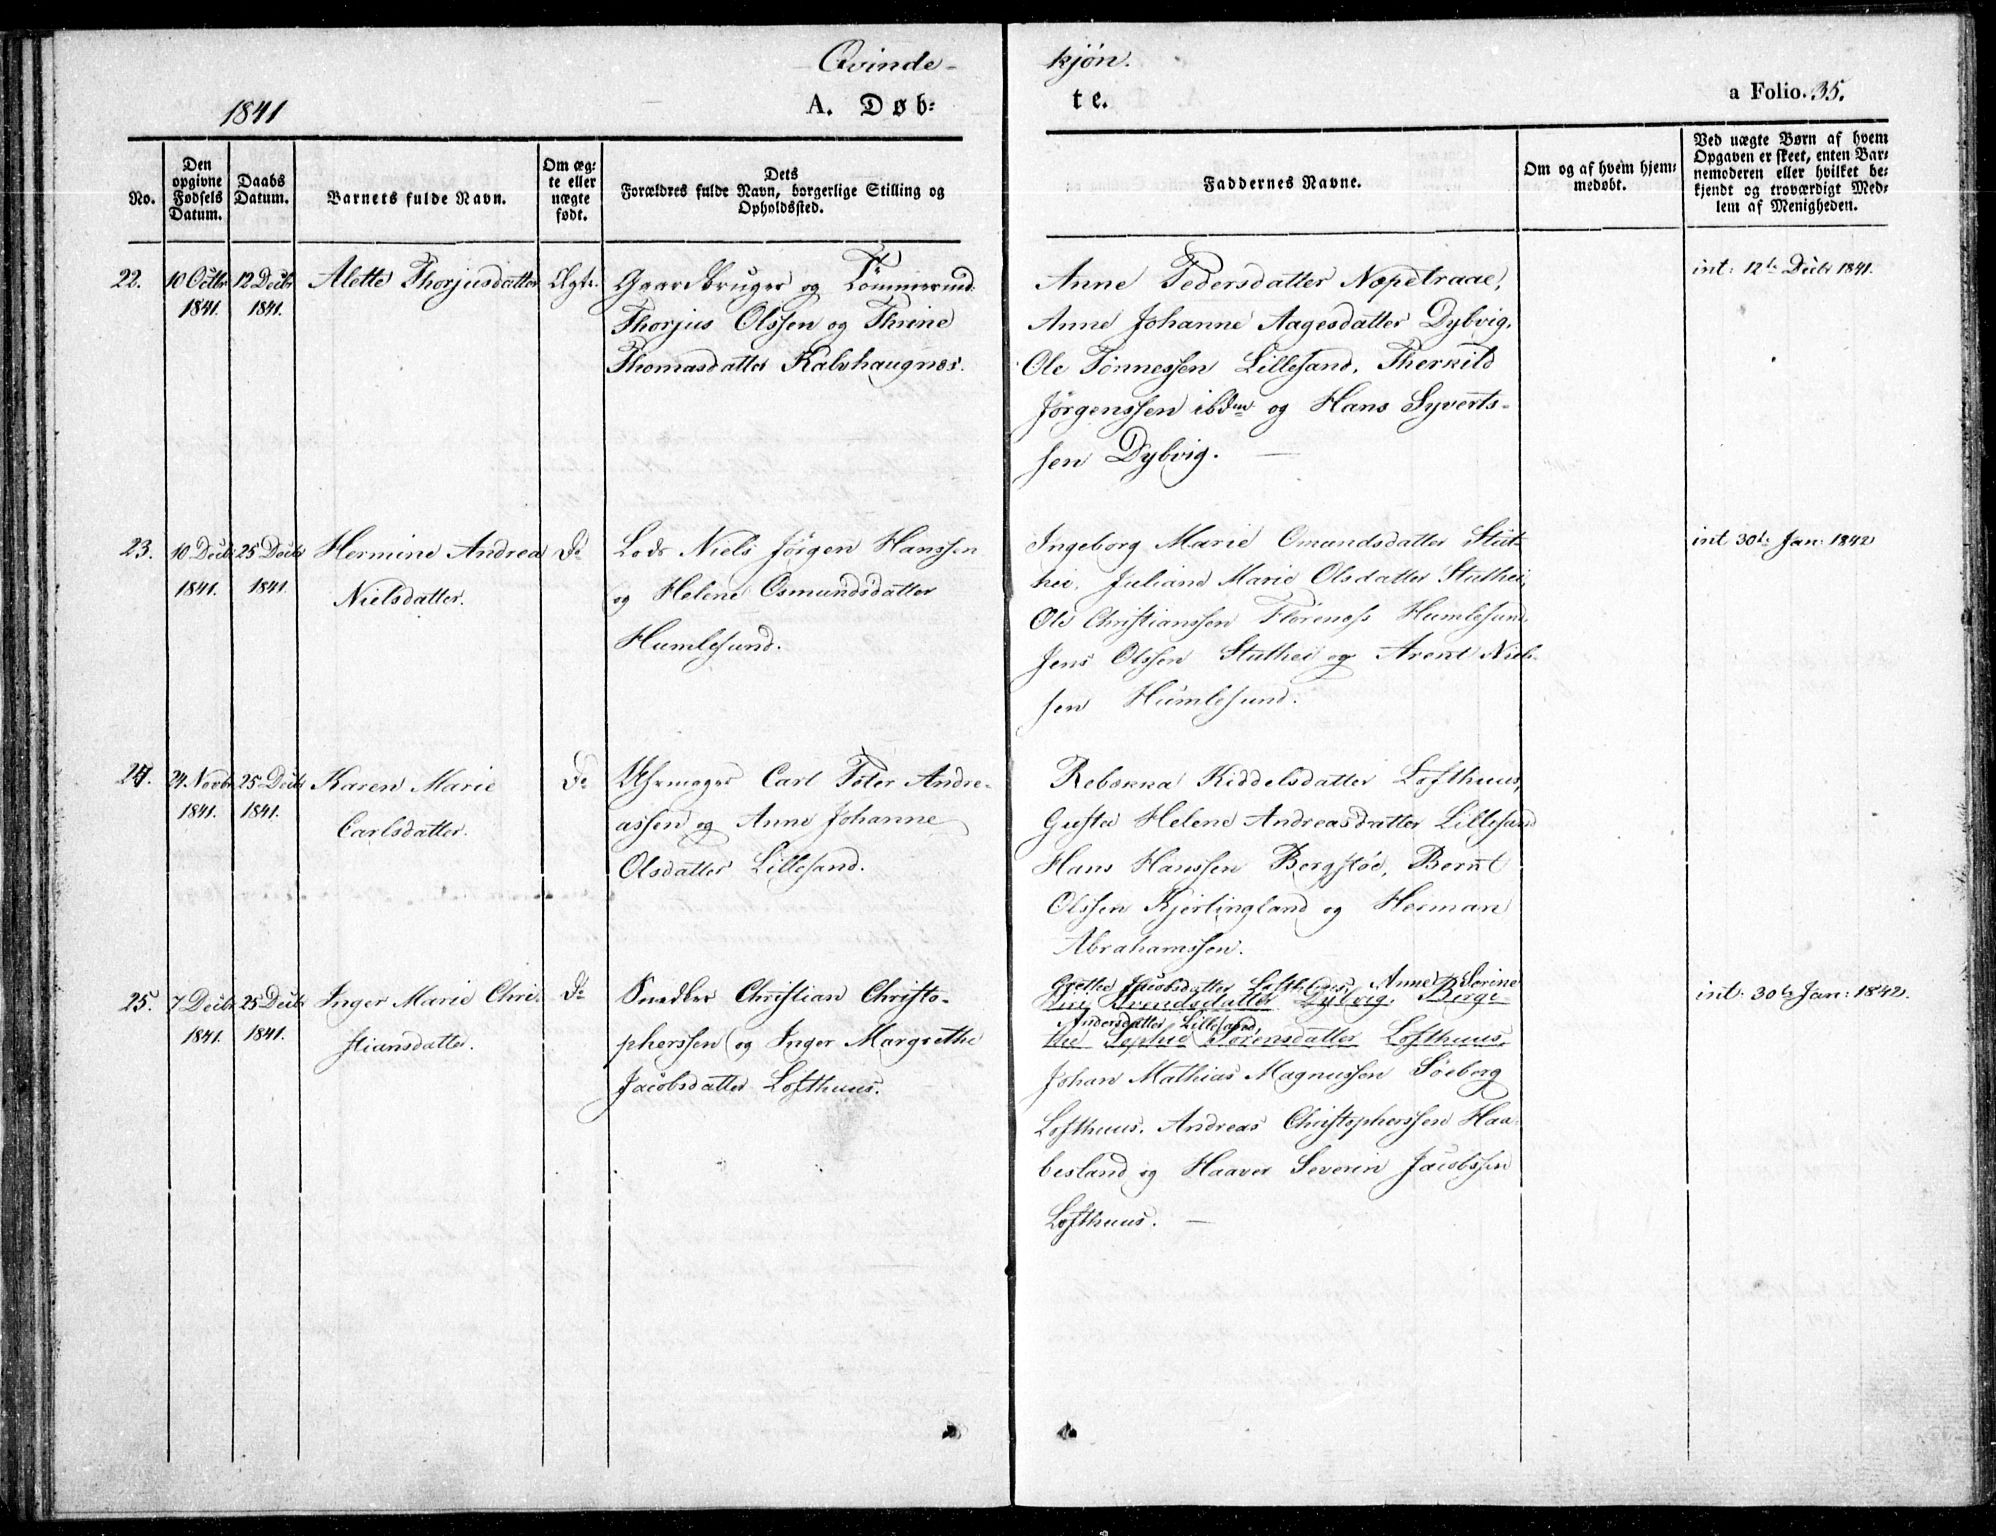 Qvinde- kjøn.
1841 A. Døb: te. a Folio. 35.
No.
Den opgivne Fødsels Datum.
Daabs Datum.
Barnets fulde Navn.
Om æg: te eller uægte født.
Dets Forældres fulde Navn, borgerlige Stilling og Opholdssted.
Faddernes Navne.
Om og af hvem hjem= medøbt.
Ved uægte Børn af hvem Opgaven er skeet, enten Bar= nemoderen eller hvilket be= kjendt og troværdigt Med= lem af Menigheden.
22. 10 Octbr 1841. 12 Decbr 1841.
Alette Thorjusdatter Ægte.
Gaardbruger og Tømmermd.
Thorjus Olssen og Thrine
Thomasdatter Kalvhaugnes.
Anne Pedersdatter Næpetraae,
Anne Johanne Aagesdatter Dybvig.
Ole Tönnessen Lillesand. Therkild
Jørgenssen ibdm og Hans Syverts-
sen Dybvig. —
int: 12te Decbr 1841.
23. 10 Decbr 1841. 25 Decbr 1841.
Hermine Andrea
Nielsdatter.
Do
Lods Niels Jørgen Hanssen
og Helene Osmundsdatter
Humlesund.
Ingeborg Marie Omundsdatter Stut-
hei. Juliane Marie Olsdatter Stuthei,
Ole Christianssen Flørenæss Humlesund,
Jens Olssen Stuthei og Arent Niel-
sen Humlesund.
int 30te Jan: 1842
24. 24 Novbr 1841. 25 Decbr 1841.
Karen Marie
Carlsdatter.
Do
Uhrmager Carl Peter Andre-
assen og Anne Johanne
Olsdatter Lillesand.
Rebekka Kiddelsdatter Lofthuus,
Gusta Helene Andreasdatter Lillesand
Hans Hanssen Bergstøe, Bernt
Olssen Kjerlingland og Herman
Abrahamssen.
25. 7 Decbr 1841. 25 Decbr 1841.
Inger Marie Chri-
stiansdatter.
Do
Smedker Christian Christo-
pherssen og Inger Margrethe
Jacobsdatter Lofthuus.
Grethe Jacobsdatter Lofthuus, Anne Serine
Arendsdatter Dybvig. Birgi-
Andersdatter Lillesand,
the Sophie Sørensdatter Lofthuus,
Johan Mathias Magnussen Søeberg
Lofthuus. Andreas Christopherssen Haa-
besland og Haaver Severin Jacobssen
Lofthuus. —
int: 30te Jan: 1842.